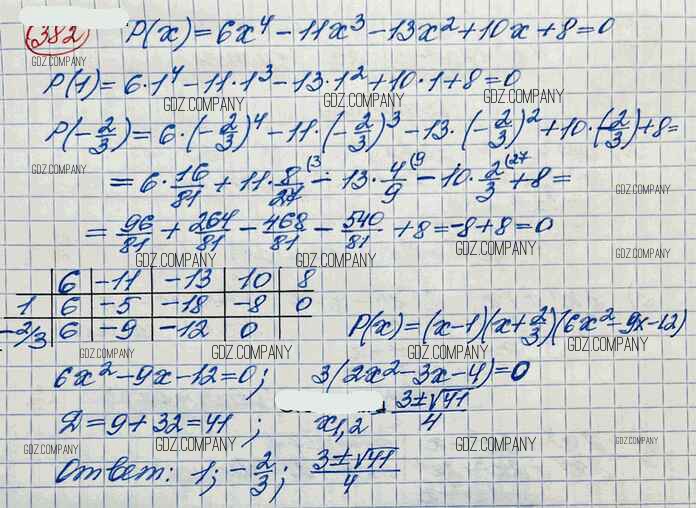 382 P(x) = 6x⁴ – 11x³ – 13x² + 10x + 8 = 0
GDZ.COMPANY
P(1) = 6·1⁴ – 11·1³ – 13·1² + 10·1 + 8 = 0
GDZ.COMPANY GDZ.COMPANY GDZ.COMPANY
P(-2/3) = 6·(-2/3)⁴ – 11·(-2/3)³ – 13·(-2/3)² + 10·(-2/3) + 8 =
GDZ.COMPANY GDZ.COMPANY GDZ.COMPANY
= 6·16/81 + 11·8/27 (3 – 13·4/9 (9 – 10·2/3 (27 + 8 =
GDZ.COMPANY GDZ.COMPANY GDZ.COMPANY GDZ.COMPANY
= 96/81 + 264/81 – 468/81 – 540/81 + 8 = -8 + 8 = 0
GDZ.COMPANY GDZ.COMPANY GDZ.COMPANY GDZ.COMPANY
6 -11 -13 10 8
1 6 -5 -18 -8 0
-2/3 6 -9 -12 0
P(x) = (x-1)(x+2/3)(6x²-9x-12)
GDZ.COMPANY GDZ.COMPANY GDZ.COMPANY GDZ.COMPANY
6x² – 9x – 12 = 0; 3(2x² – 3x – 4) = 0
Д = 9 + 32 = 41; x₁,₂ 3±√41/4
GDZ.COMPANY GDZ.COMPANY GDZ.COMPANY GDZ.COMPANY
Ответ: 1; -2/3; 3±√41/4